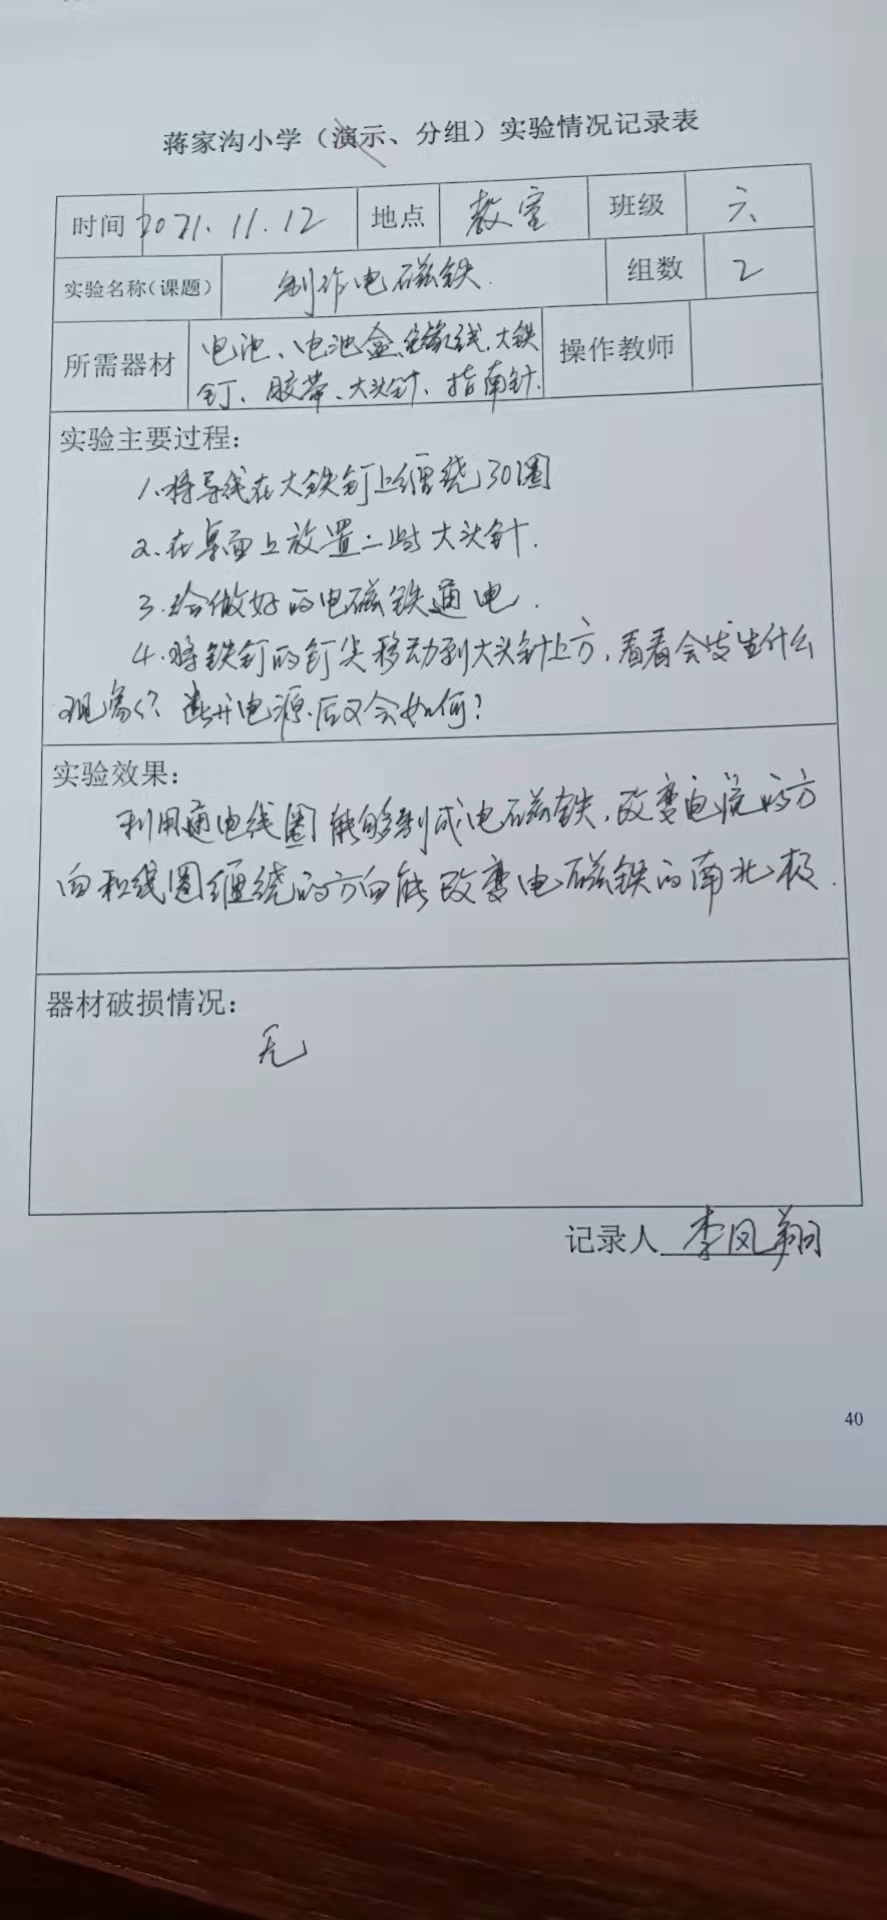 蒋家沟小学（演示、分组）实验情况记录表
时间 2021.11.12 地点 教室 班级 六
实验名称（课题） 制作电磁铁. 组数 2
所需器材 电池、电池盒、绝缘线、大铁 操作教师
钉、胶带、大头针、指南针.
实验主要过程：
1.将导线在大铁钉上缠绕30圈
2.在桌面上放置一些大头针.
3.给做好的电磁铁通电.
4.将铁钉的钉尖移动到大头针上方，看看会发生什么
现象？断开电源后又会如何？
实验效果：
利用通电线圈能够制成电磁铁，改变电流的方
向和线圈缠绕的方向能改变电磁铁的南北极.
器材破损情况：
无
记录人 李凤翔
40